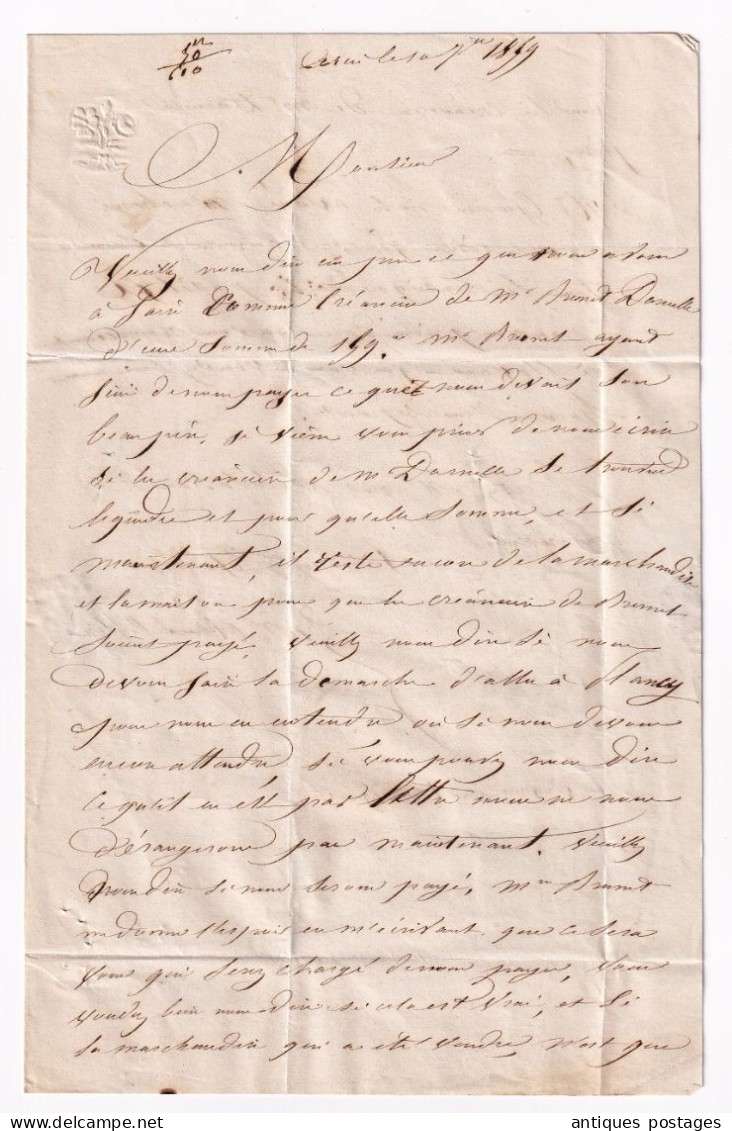 le 10 1859
Monsieur
Veuillez nous dire un peu ce que nous avons
à faire comme Créancier de Mr Brunet Darnelle
d'une Somme de 159. Mr Brunet ayant
fini de nous payer ce quil nous devait Son
beau pére, je vien vous prier de nous écrire
Si les créancier de Mr Darnelle Se trouve
et pour quelle Somme, et Si
maintenant, il reste encore de la marchandise
et la maison pour que les créancier de Brunet
Soient payé, Veuillez nous dire Si nous
devons faire la demarche d'aller à Nancy
pour nous en entendre ou Si nous devons
encore attendre Si vous pouvez nous dire
Ce quil en est par lettre nous ne nous
dérangerons pas maintenant. Veuillez
nous dire Si nous Serons payé, Mr Brunet
me donne l'espoir en m'écrivant que ce Sera
vous qui Serez chargé de nous payer, Vous
voudrez bien nous dire Si cela est Vrai, et Si
la marchandise qui a été vendue, n'est que
antiques postages